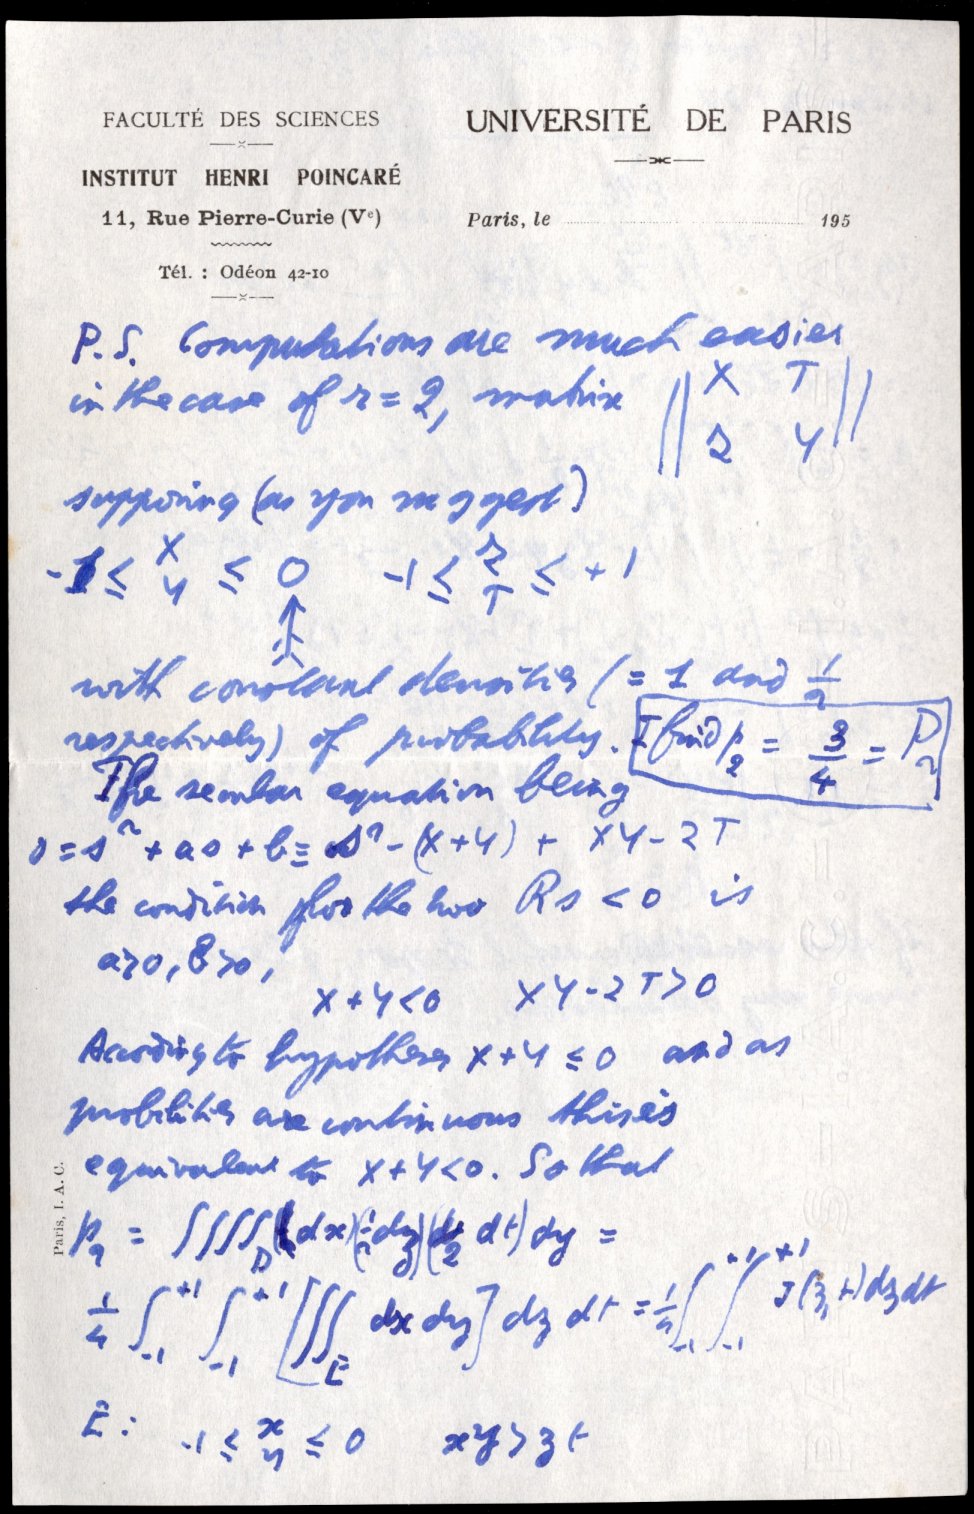 FACULTÉ DES SCIENCES
INSTITUT HENRI POINCARÉ
11, Rue Pierre-Curie (Vᵉ)
Tél. : Odéon 42-10
UNIVERSITÉ DE PARIS
Paris, le 195
P.S. Computations are much easier
in the case of n = 2, matrix ‖ X T
Z Y ‖
supposing (as you suggest)
-1 ≤ X Y ≤ 0 -1 ≤ Z T ≤ +1
with constant densities (= 1 and 1/2
respectively) of probability. I find p₂ = 3/4 = P₂
The secular equation being
0 = s² + as + b ≡ s² - (X+Y) + XY - ZT
the condition for the two Rs < 0 is
a>0, b>0,
X+Y<0 XY-ZT>0
According to hypotheses X+Y ≤ 0 and as
probilities are continuous this is
equivalent to X+Y<0. So that
p₂ = ∫∫∫∫_D (dx)(1/2 dz)(1/2 dt) dy =
1/4 ∫₋₁⁺¹ ∫₋₁⁺¹ [∫∫_E dx dy] dz dt = 1/4 ∫₋₁⁺¹ ∫₋₁⁺¹ J(z,t) dz dt
E: -1 ≤ x y ≤ 0 xy > zt
Paris, I. A. C.